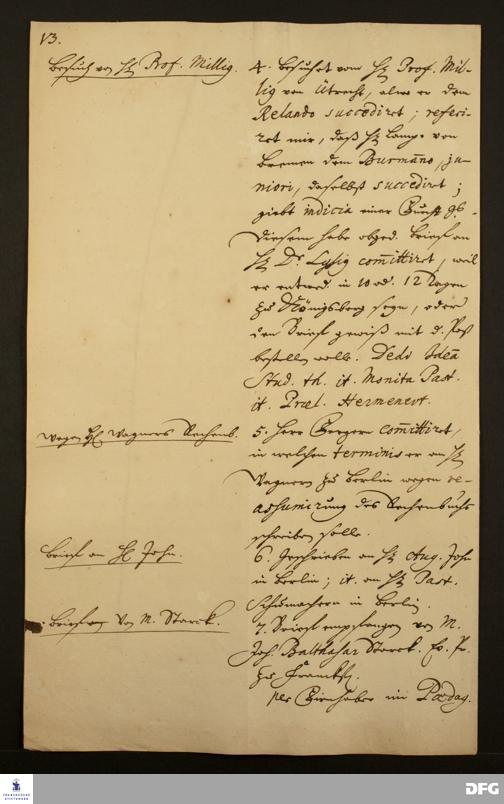 13.
Besuch von H. Prof. Millig.
4. besuchet vom H. Prof. Mil-
lig von Utrecht, alwo er dem
Relando succediret; referi-
ret mir, daß H. Lampe von
Bremen dem Burmanno, ju-
niori, daselbst succediret;
giebt indicia einer
Diesem habe obged. Brief an
H. Dr. Lysig committiret, weil
er entwed. in 10 od. 12 Tagen
zu Königsberg seyn, oder
den Brief gewiß mit d. Post
bestellen wolle. Dedi Ideā
Stud. th. it. Monita Past.
it. Præl. Hermenevt.
Wegen H. Wagners Rechenb.
5. Herr committiret,
in welchen terminis er an H.
Wagnern zu Berlin wegen re-
assumirung des Rechenbuchs
schreiben solle.
Brief an H. John.
6. Geschrieben an H. Aug. John
in Berlin; it. an H. Past.
Schumachern in Berlin.
Brief von M. Starck.
7. Brief empfangen von M.
Joh. Balthasar Starck.
zu
per im Pædag.
FRANCKESCHE STIFTUNGEN
DFG